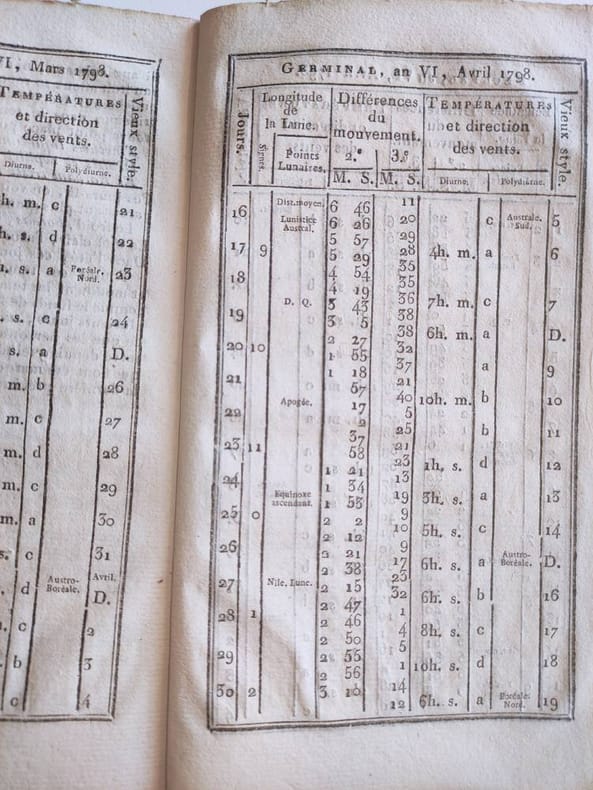 VI, Mars 1798.
TEMPÉRATURES
et direction
des vents.
Vieux style.
Diurne.
Polydiurne.
h. m. c 21
h. s. d 22
h. s. a Boréale. Nord. 23
. s. c 24
s. a D.
m. b 26
m. c 27
m. d 28
m. c 29
m. a 30
s. c 31
. d Austro-Boréale. Avril. D.
. c 2
. b 3
c 4
GERMINAL, an VI, Avril 1798.
Jours.
Signes.
Longitude
de
la Lune.
Points
Lunaires.
Différences
du
mouvement.
2.e 3.e
M. S. M. S.
TEMPÉRATURES
et direction
des vents.
Diurne.
Polydiurne.
Vieux style.
16 Dist. moyen. 6 46 11 c Australe. Sud. 5
Lunistice Austral. 6 26 20
17 9 5 57 29
5 29 28 4h. m. a 6
18 4 54 35
4 19 35
D. Q. 3 43 36 7h. m. c 7
19 3 5 38
38 6h. m. a D.
20 10 2 27
1 55 32
37 a 9
21 1 18
57 21
Apogée. 17 40 10h. m. b 10
22 5
2 25 b 11
37
23 11 58 21
23 1h. s. d 12
24 1 21 13
1 34
Equinoxe ascendant. 1 53 19 3h. s. a 13
25 0 2 2 9
2 12 10 5h. s. c 14
26 2 21 9
2 38 17 6h. s. a Austro-Boréale. D.
27 Nile, Lune. 2 15 23
2 47 32 6h. s. b 16
28 1 2 46 1
2 50 4 8h. s. c 17
29 2 55 5
2 56 1 10h. s. d 18
30 2 3 10 14
12 6h. s. a Boréale. Nord. 19